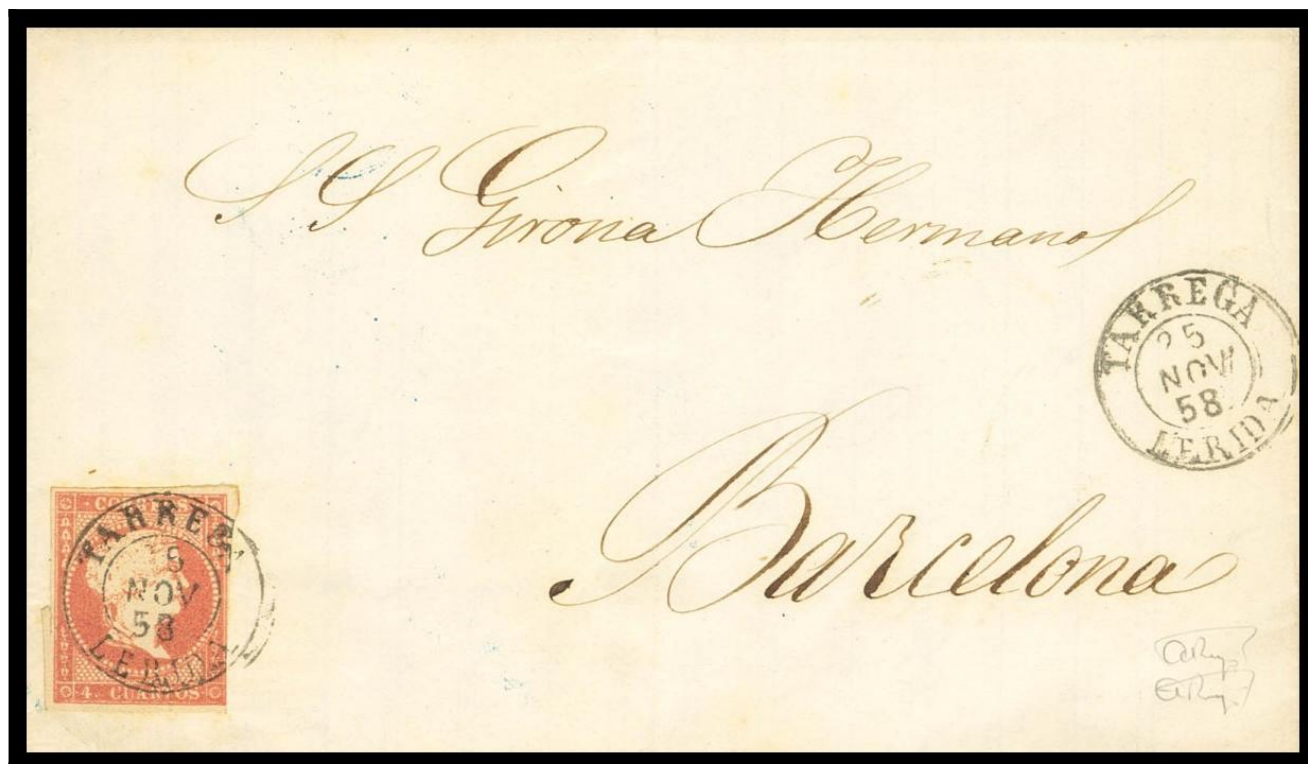 SS Girona Hermanos
TARREGA
25
NOV
58
LERIDA
Barcelona
CORREOS
TARREGA
NOV
58
LERIDA
4. CUARTOS